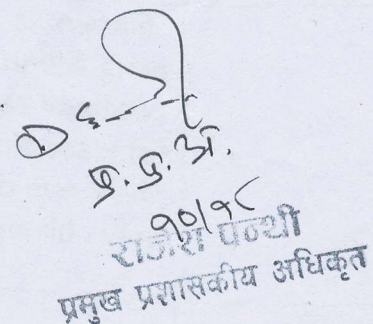 प्र. प्र. अ.
१०/१८
राजेश पन्थी
प्रमुख प्रशासकीय अधिकृत